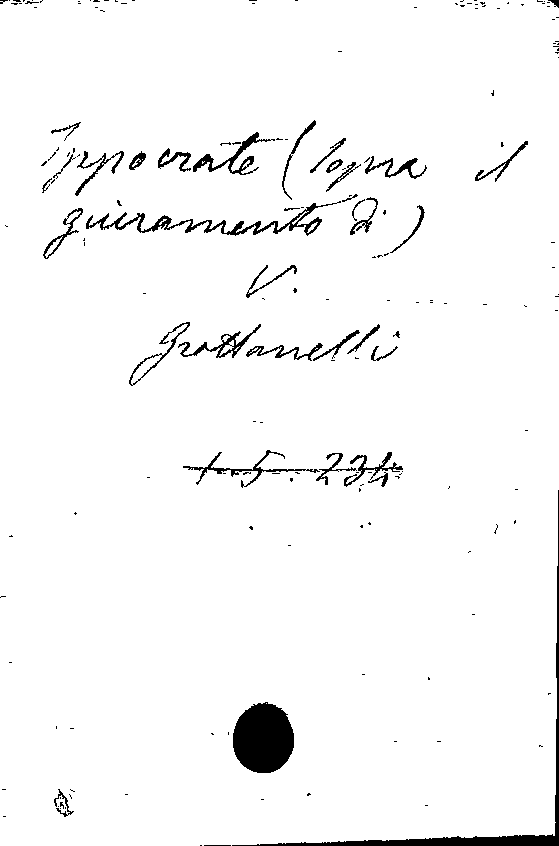 Ippocrate (Sopra il
giuramento di)
V.
Grottanelli
1.5.234